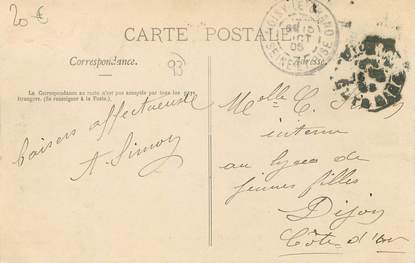 20 €
CARTE POSTALE
Correspondance.
93
Adresse
La Correspondance au recto n'est pas acceptée par tous les pays
étrangers. (Se renseigner à la Poste.)
baisers affectueux
A Simon
Melle C. Simon
interne
au lycée de
jeunes filles
Dijon
Côte d'or